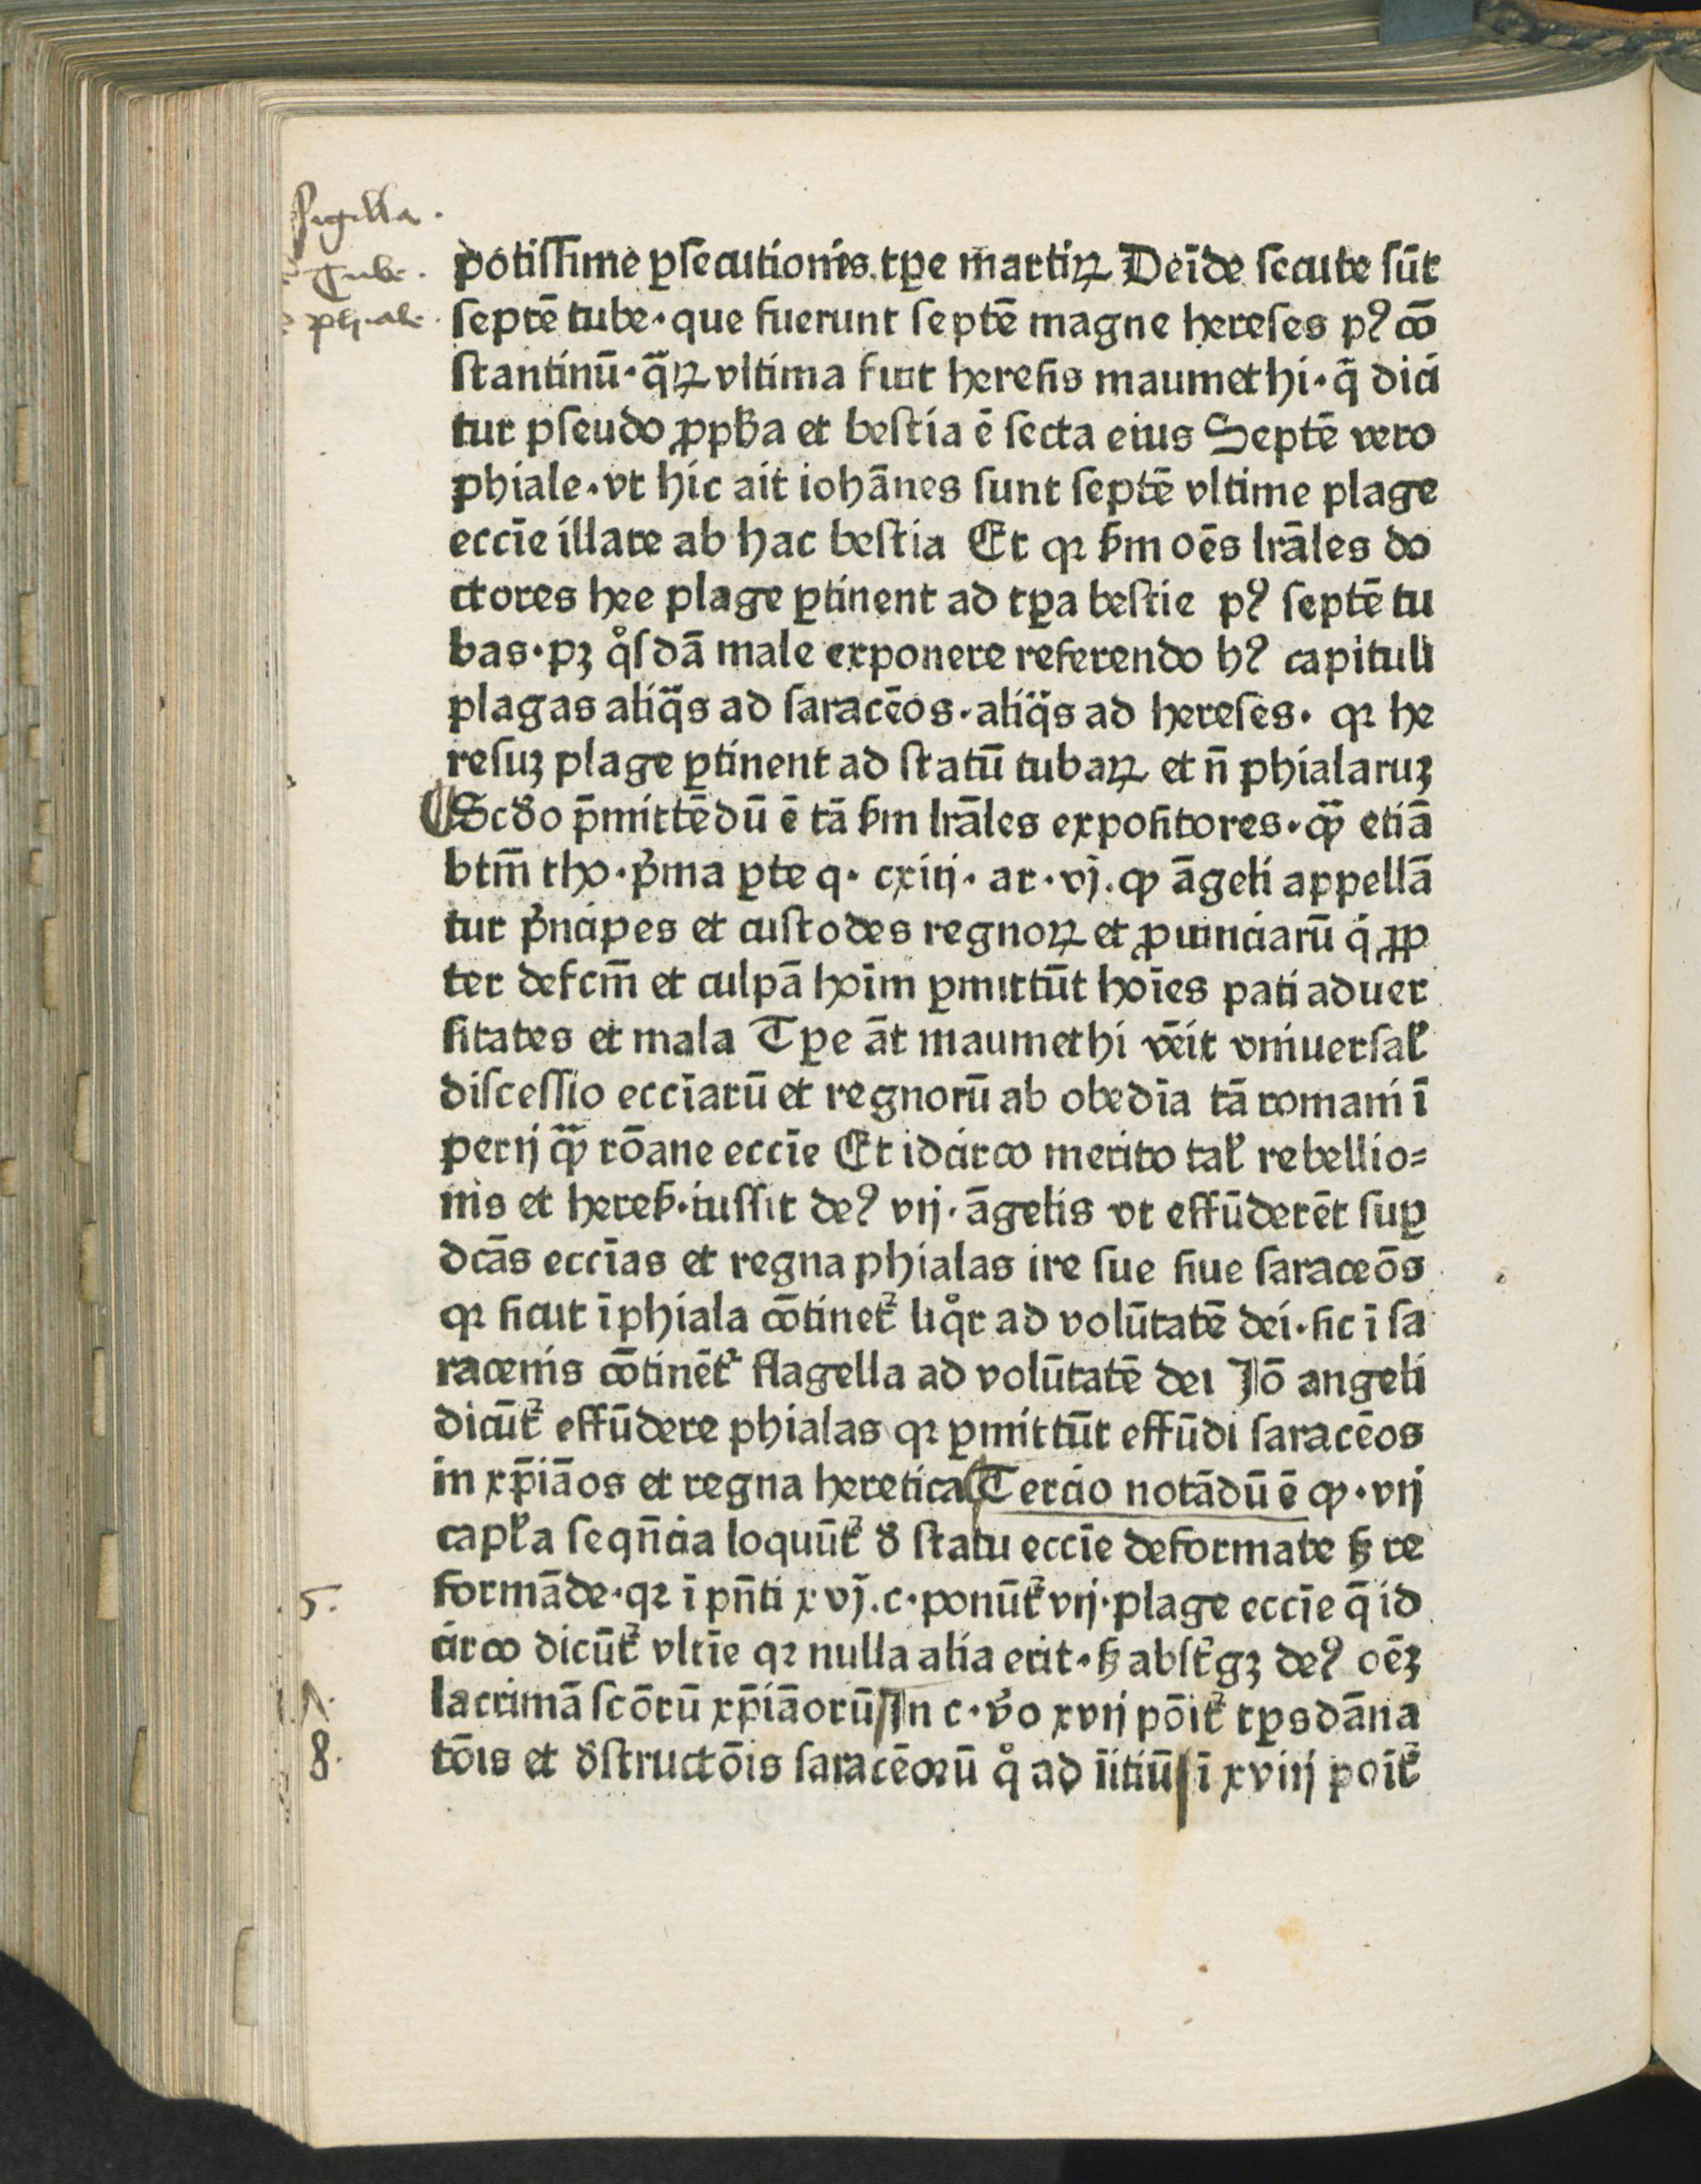 Sigilla.
Tube.
phiale.
potissime ꝑsecutionis tꝑe martiꝝ Deīde secute sūt
septē tube· que fuerunt septē magne hereses pꝰ cō
stantinū· q̄ꝝ vltima fuit heresis maumethi· q̄ dici
tur pseudo ꝓpħa et bestia ē secta eius Septē vero
phiale· vt hic ait iohānes sunt septē vltime plage
eccīe illate ab hac bestia Et qꝛ ẜm oēs lrāles do
ctores hee plage ꝑtinent ad tꝑa bestie pꝰ septē tu
bas· pꝫ qͦsdā male exponere referendo hꝰ capituli
plagas aliq̄s ad saracēos· aliq̄s ad hereses· qꝛ he
resuꝫ plage ꝑtinent ad statū tubaꝝ et n̄ phialaruꝫ
¶ Scđo p̄mittēdū ē tā ẜm lrāles expositores· ꝙ̄ etiā
btm̄ tho· pͥma ꝑte q· cxiij· ar· vj. ꝙ āgeli appellā
tur pͥncipes et custodes regnoꝝ et ꝓuinciarū qͥ ꝓp
ter defcm̄ et culpā hoīm ꝑmittūt hoīes pati aduer
sitates et mala Tꝑe āt maumethi vēit vniuersaƚ
discessio eccīarū et regnorū ab obedīa tā romani ī
perij ꝙ̄ rōane eccīe Et idcirco merito taƚ rebellio⸗
nis et hereẜ· iussit deꝰ vij· āgelis vt effūderēt suꝑ
dcās eccīas et regna phialas ire sue siue saraceōs
qꝛ sicut ī phiala cōtinetᷣ liqͦr ad volūtatē dei· sic ī sa
racenis cōtinētᷣ flagella ad volūtatē dei Jō angeli
dicūtᷣ effūdere phialas qꝛ ꝑmittūt effūdi saracēos
in xp̄iāos et regna heretica Tercio notādū ē ꝙ· vij
capƚa seqn̄cia loquūtᷣ đ statu eccīe deformate ꜩ re
formāde· qꝛ ī pn̄ti xvj. c· ponūtᷣ vij· plage eccīe q̄ id
5.
circo dicūtᷣ vltīe qꝛ nulla alia erit· ꜩ abstͬgꝫ deꝰ oēꝫ
lacrimā scōrū xp̄iāorū In c· vͦo xvij pōitᷣ tꝑs dāna
7.
tōis et đstructōis saracēoꝛū qͦ ad īitiū ī xviij poītᷣ
8.